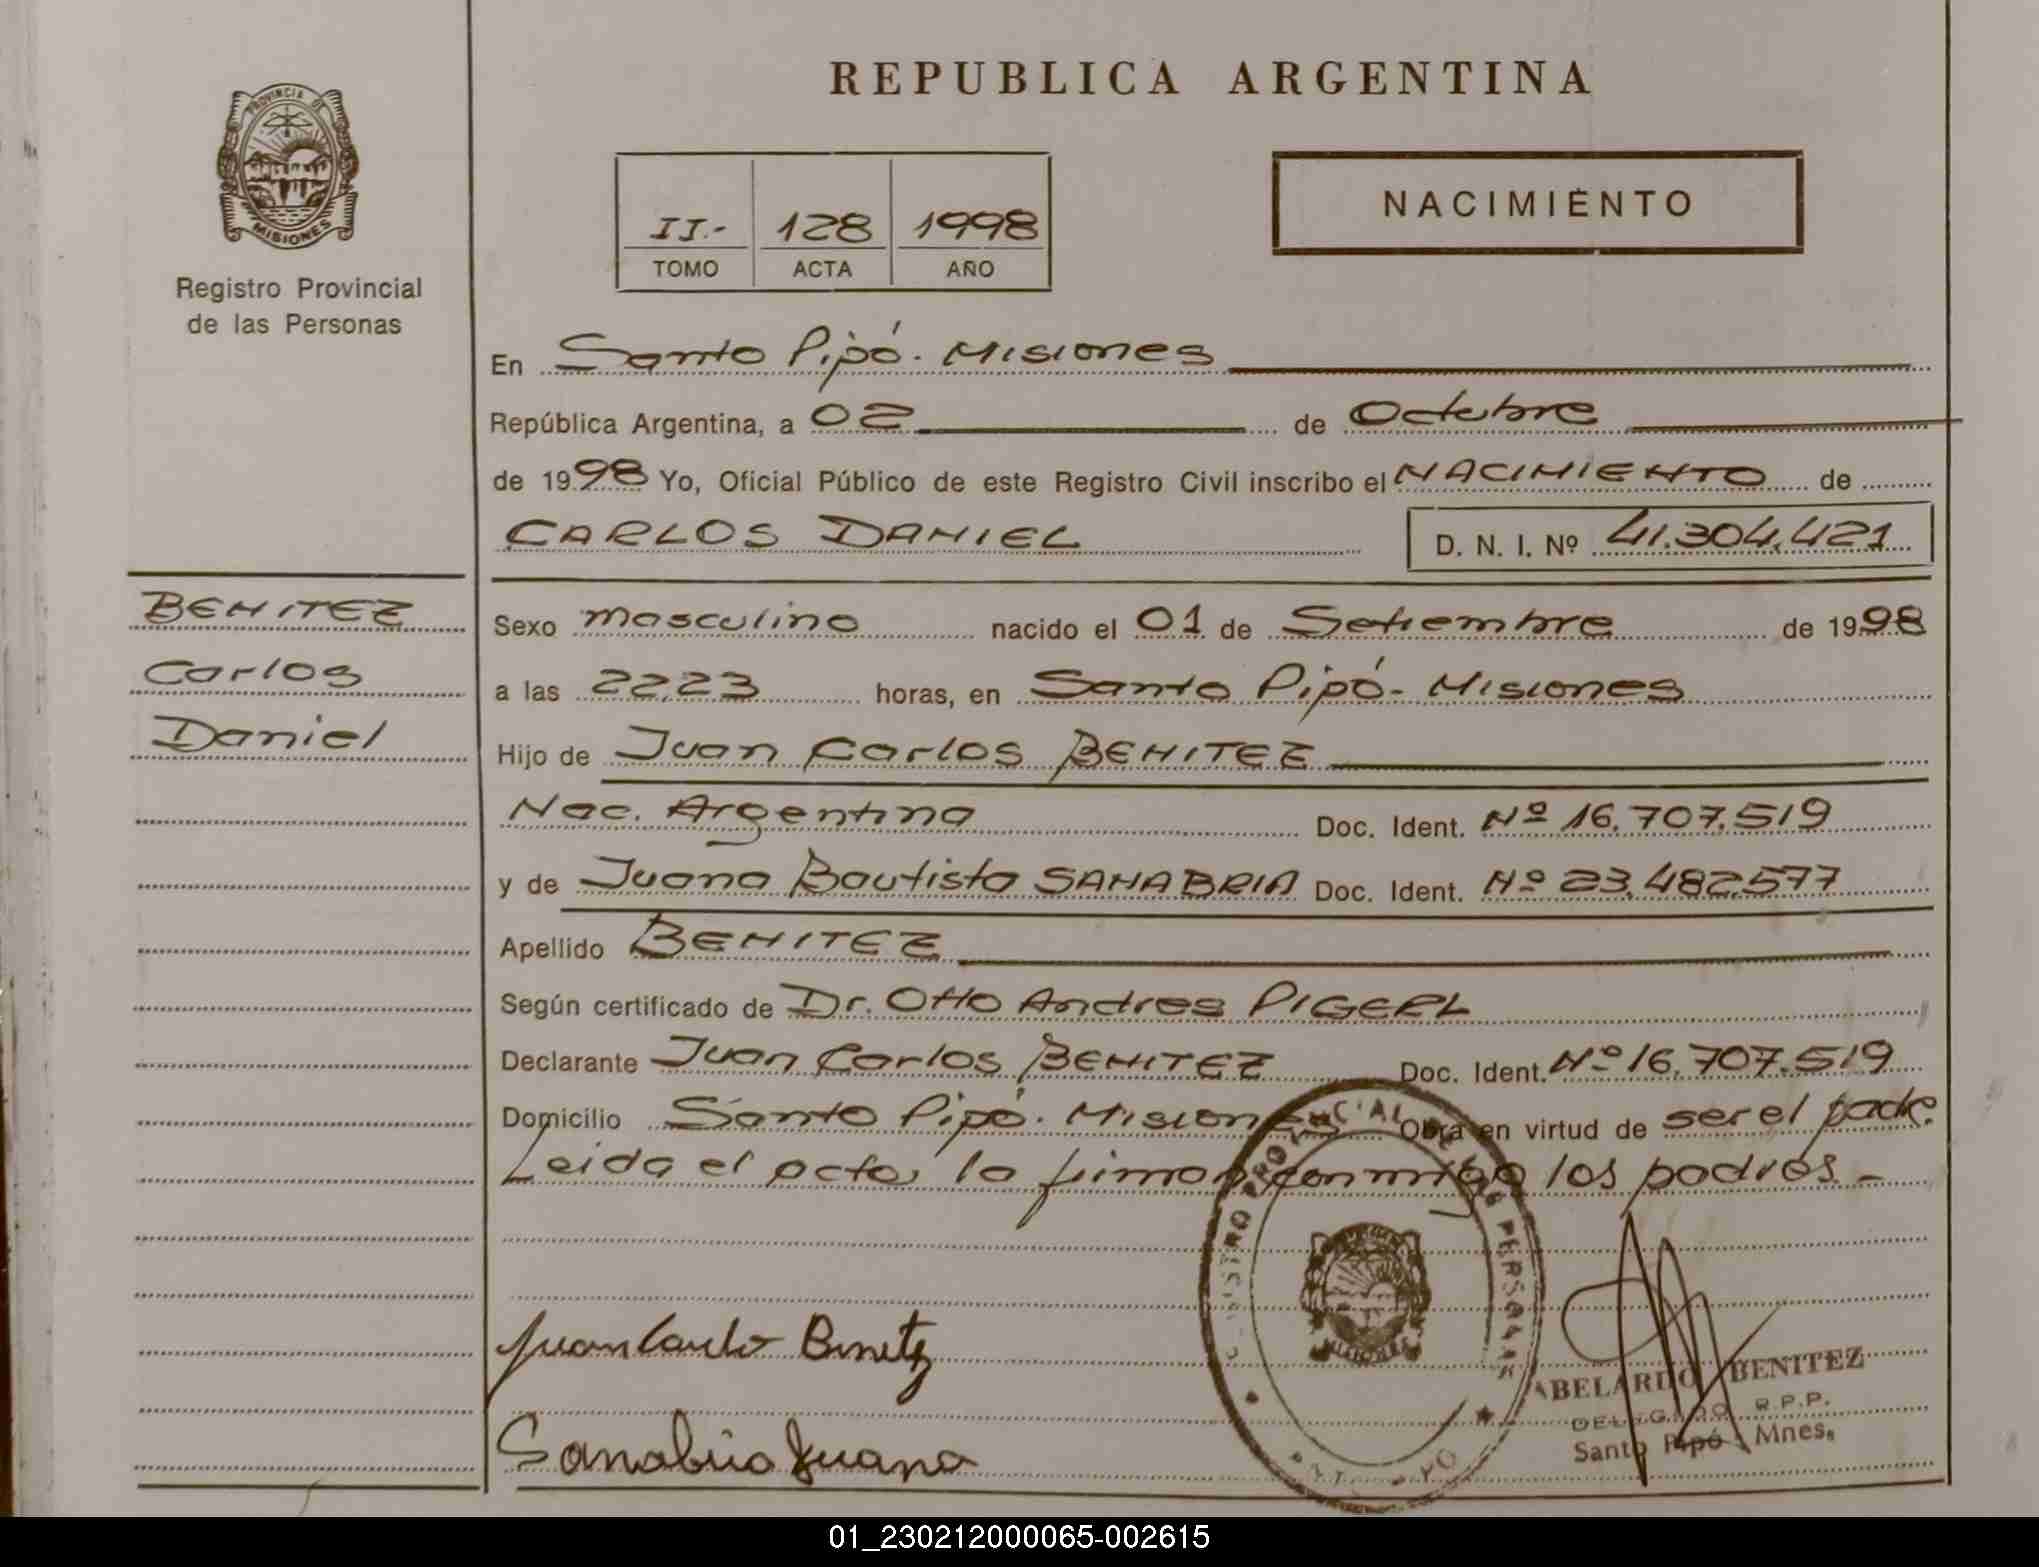 REPUBLICA ARGENTINA
PROVINCIA DE
MISIONES
Registro Provincial
de las Personas
II.- 128 1998
TOMO ACTA AÑO
NACIMIENTO
En Santo Pipó. Misiones
República Argentina, a 02 de Octubre
de 1998 Yo, Oficial Público de este Registro Civil inscribo el NACIMIENTO de
CARLOS DANIEL D. N. I. Nº 41.304.421
BENITEZ
Carlos
Daniel
Sexo masculino nacido el 01 de Setiembre de 1998
a las 22,23 horas, en Santo Pipó- Misiones
Hijo de Juan Carlos BENITEZ
Nac. Argentina Doc. Ident. Nº 16.707.519
y de Juana Bautista SANABRIA Doc. Ident. Nº 23.482.577
Apellido BENITEZ
Según certificado de Dr. Otto Andres PIGERL
Declarante Juan Carlos BENITEZ Doc. Ident. Nº 16.707.519
Domicilio Santo Pipó. Misiones Obra en virtud de ser el padre.
Leida el acta, la firman conmigo los padres.-
REGISTRO PROVINCIAL DE LAS PERSONAS
MISIONES
Juan Carlos Benitez
Sanabria Juana
ABELARDO BENITEZ
DELEGADO R.P.P.
Santo Pipó - Mnes.
01_230212000065-002615